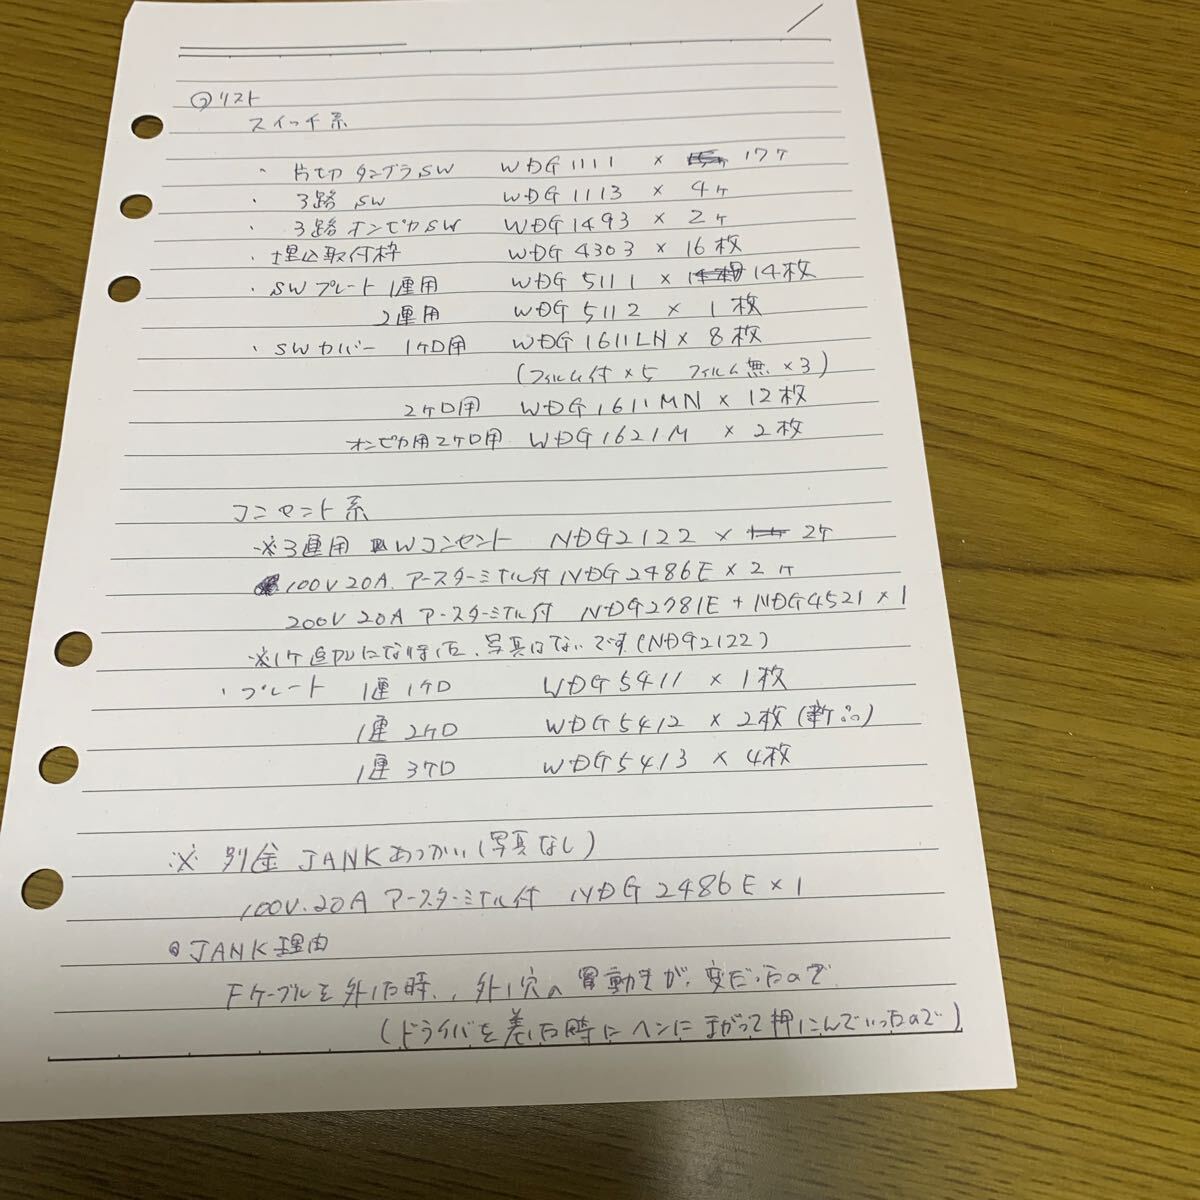 リスト
スイッチ系
・片切タンブラSW WDG1111 × 17ケ
・3路SW WDG1113 × 4ケ
・3路オンピカSW WDG1493 × 2ケ
・埋込取付枠 WDG4303 × 16枚
・SWプレート 1連用 WDG5111 × 14枚
2連用 WDG5112 × 1枚
・SWカバー 1ケ口用 WDG1611LN × 8枚
(フィルム付×5 フィルム無×3)
2ケ口用 WDG1611MN × 12枚
オンピカ用2ケ口用 WDG1621M × 2枚
コンセント系
※3連用 Wコンセント NDG2122 × 2ケ
100V20A.アースターミナル付 NDG2486E × 2ケ
200V20A アースターミナル付 NDG2781E + NDG4521 × 1
※1ケ追加になりました、写真はないです(NDG2122)
・プレート 1連1ケ口 WDG5411 × 1枚
1連2ケ口 WDG5412 × 2枚(新品)
1連3ケ口 WDG5413 × 4枚
※ JANKあつかい(写真なし)
100V.20A アースターミナル付 NDG2486E × 1
JANK理由
Fケーブルを外した時、外し穴の動きが、変だったので
(ドライバを差した時にヘンにまがって押しこんでいったので)